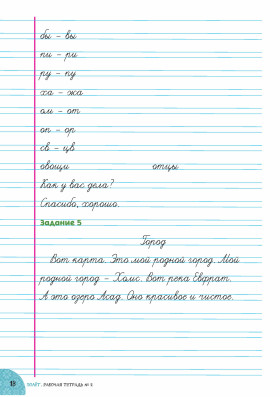 бы – вы
пи – ри
ру – пу
ха – жа
ом – от
оп – ор
св – цв
овощи отцы
Как у вас дела?
Спасибо, хорошо.
Задание 5
Город
Вот карта. Это мой родной город. Мой
родной город – Хомс. Вот река Евфрат.
А это озеро Асад. Оно красивое и чистое.
РАБОЧАЯ ТЕТРАДЬ № 2